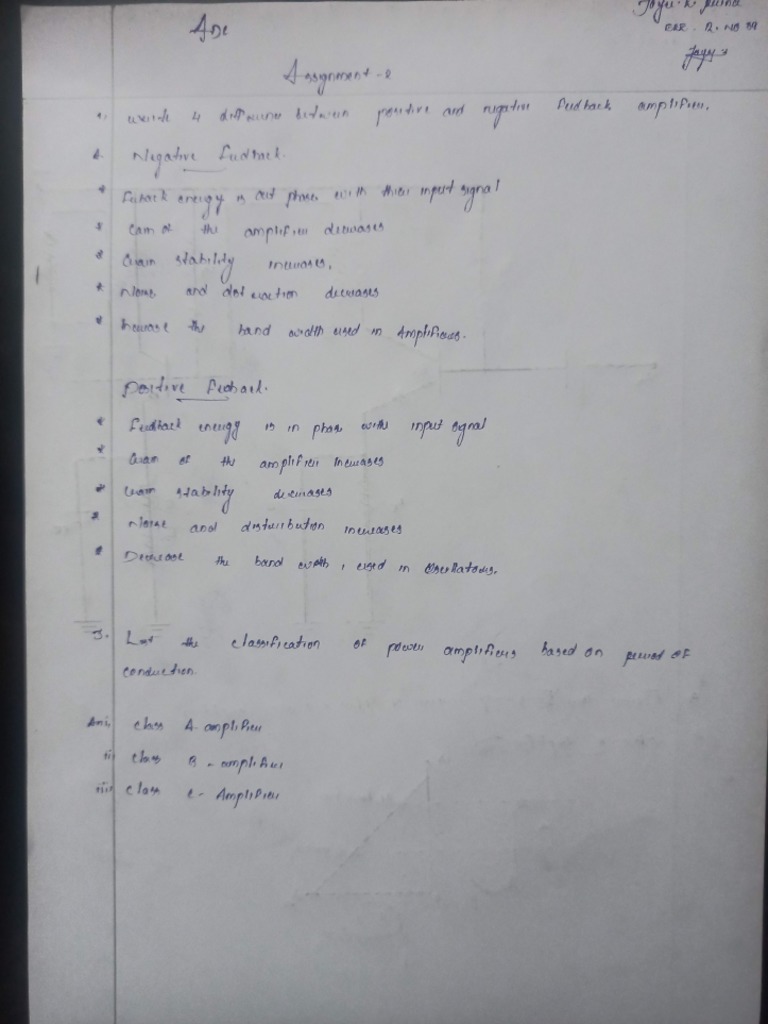 Assignment - 2
write 4 between positive and negative feedback amplifier.
Negative Feedback.
* energy is out phase with input signal
* of the amplifier decreases
* Gain stability increases.
* Noise and decreases
* Increase the band width used in Amplifiers.
Positive Feedback.
* Feedback energy is in phase with input signal
* Gain of the amplifier Increases
* Gain stability decreases
* Noise and distribution increases
* Decrease the band width, used in Oscillators.
3. List the classification of power amplifiers based on period of
conduction.
Ans i, class A - amplifier
ii) class B - amplifier
iii) class C - Amplifier